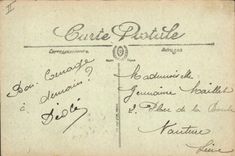 II
Carte Postale
CORRESPONDANCE
ADRESSE
Bon Courage
à demain ?
Dédé
Mademoiselle
Germaine Maillet
2. Place de la
Nanterre
Seine